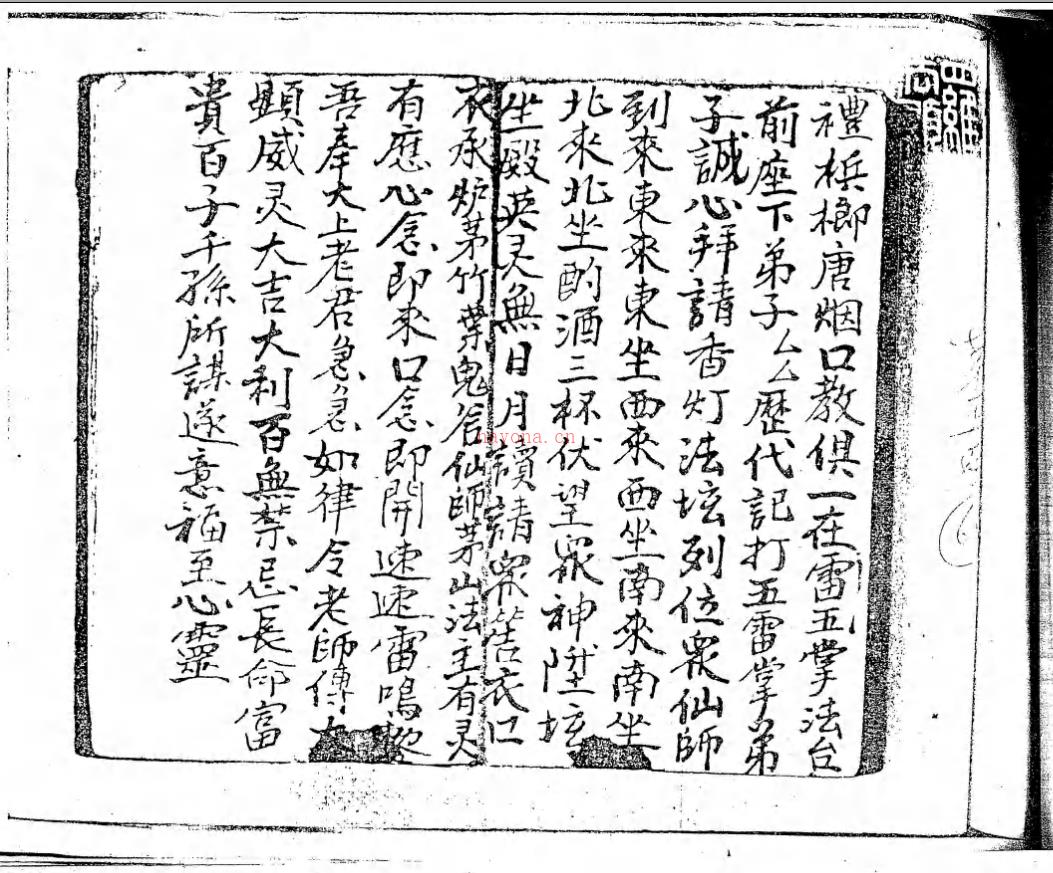 禮梹榔唐烟口教俱一在雷五掌法台
前座下弟子厶厶歷代記打五雷掌弟
子誠心拜請香灯法坛列位眾仙師
到來東來東坐西來西坐南來南坐
北來北坐酌酒三杯伏望眾神陞坛
坐殿英灵無日月讀請眾筶衣口
衣承炉茅竹葉鬼谷仙師茅山法主有灵
有應心念即來口念即開速速雷鳴
吾奉大上老君急急如律令老師傅
顕威灵大吉大利百無禁忌長命富
貴百子千孫所謀遂意福至心靈
nayona.cn